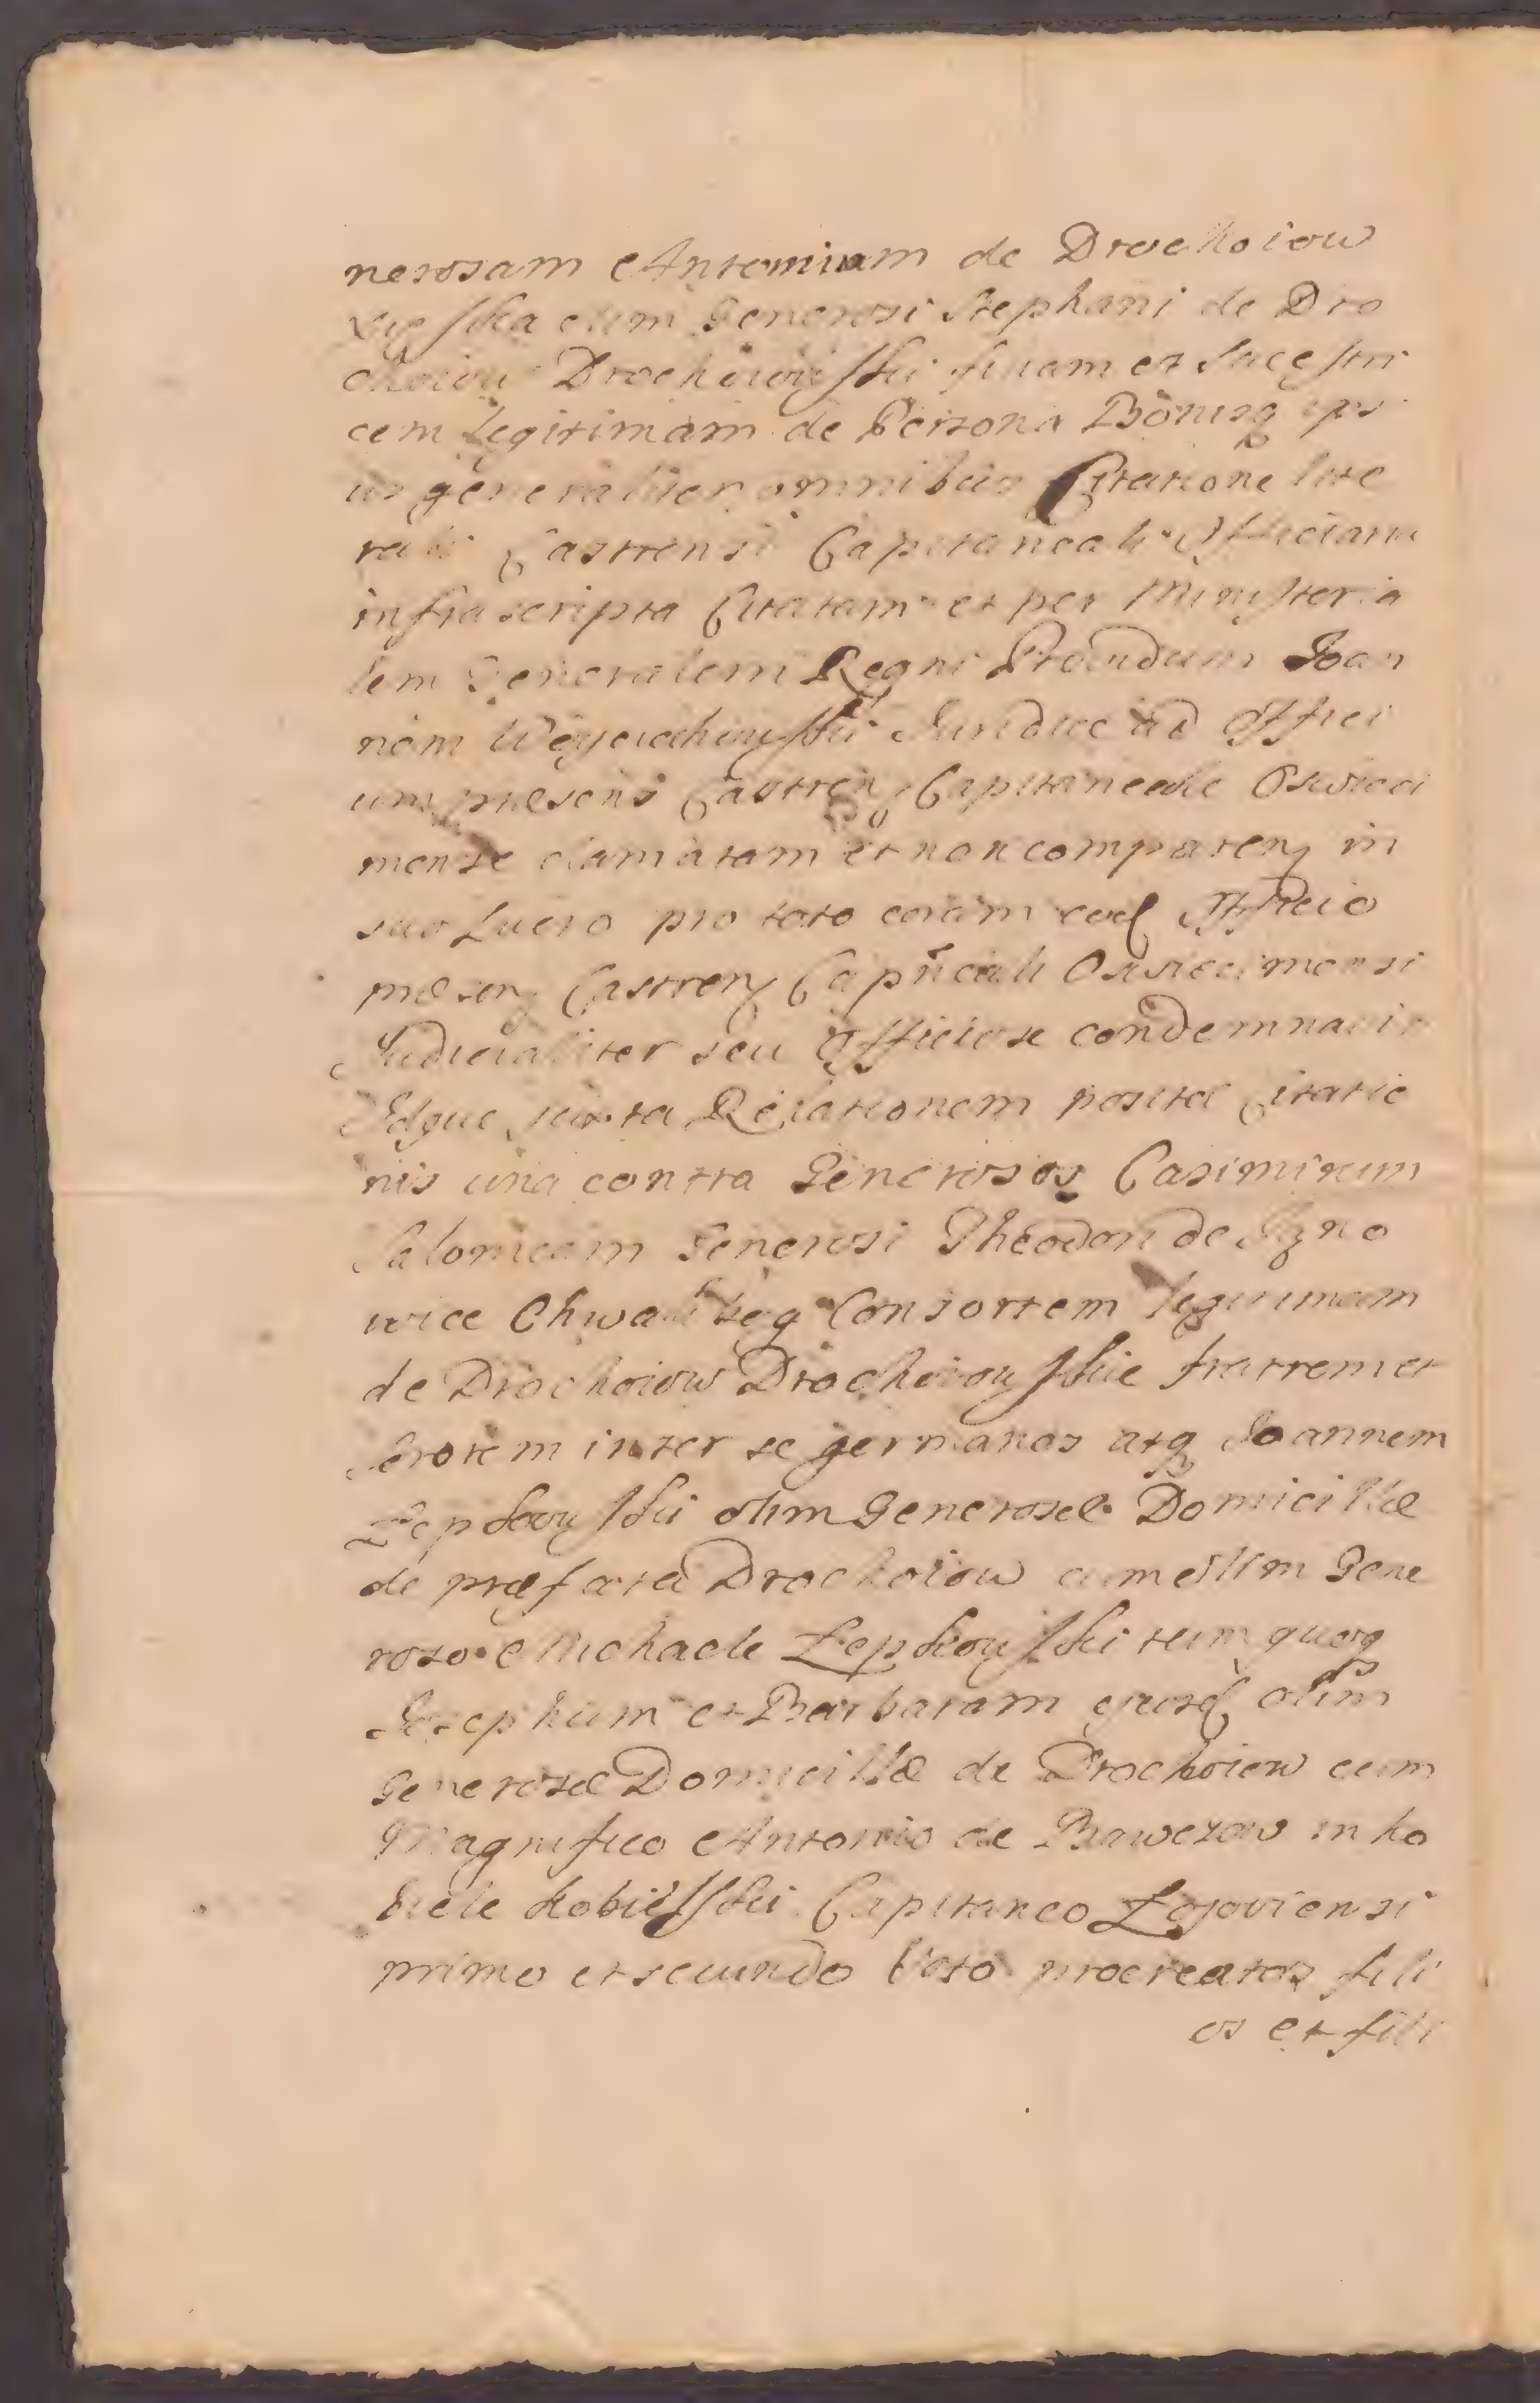 nerosam Antoninam de Drochoiow
olim Generosi Stephani de Dro
choiow Drochoiowski filiam et Sucestri
cem Legitimam de Persona Bonisq ips
ius generaliter omnibus Citatione lite
rali Castrensi Capitaneali Officiani
infrascripta Citatam et per Ministeria
lem Generalem Regni Providum Joan
nem Juridice ad Offici
um præsens Castren Capitaneale Oswieci
mense clamatam et non comparen in
suo Lucro pro toto coram eod Officio
præsen Castren Capnëali Oswiecimensi
Judicialiter seu Officiose condemnavit
Idque juxta Relationem positæ Citatio
nis una contra Generosos Casimirum
Salomeam Generosi Theodori de
wice Consortem legitimam
de Drochoiow Drochoiowskie fratrem et
Sororem inter se germanos atq Joannem
Łepkowski olim Generosæ Domicillæ
de præfata Drochoiow cum olim Gene
roso Michaele Łepkowski tum quoq
Josephum et Barbaram ejusd olim
Generosæ Domicillæ de Drochoiow cum
Magnifico Antonio de Bawczow in Ko
biele Kobielski Capitaneo Łojoviensi
primo et secundo Voto procreatos fili
os et fili